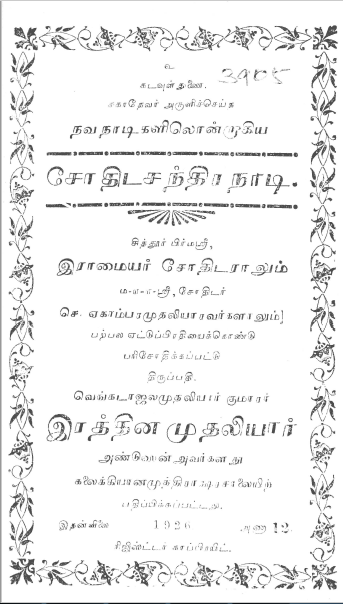 உ
3985
கடவுள் துணை.
சகாதேவர் அருளிச்செய்த
நவநாடிகளிலொன்றாகிய
சோதிடசந்திரநாடி.
சித்தூர் பிர்மஸ்ரீ,
இராமையர் சோதிடராலும்
ம-ள-ள-ஸ்ரீ, சோதிடர்
செ. ஏகாம்பரமுதலியாரவர்களாலும்
பற்பல ஏட்டுப்பிரதியைக்கொண்டு
பரிசோதிக்கப்பட்டு
திருப்பதி.
வெங்கடாஜலமுதலியார் குமாரர்
இரத்தின முதலியார்
அண்டு அவர்களது
கலைக்கியானமுத்திராக்ஷரசாலையிற்
பதிப்பிக்கப்பட்டது.
இதன்விலை 1926 அணா 12
ரிஜிஸ்டர் காப்பிரைட்.